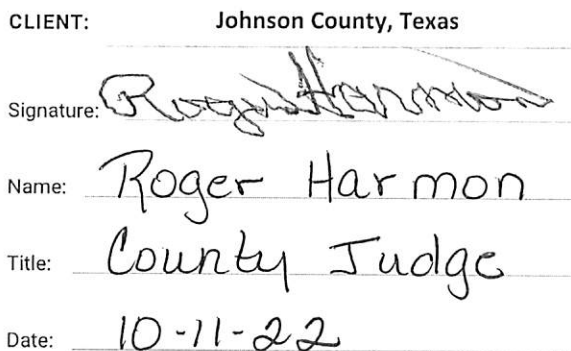 CLIENT: Johnson County, Texas
Signature: Roger Harmon
Name: Roger Harmon
Title: County Judge
Date: 10-11-22